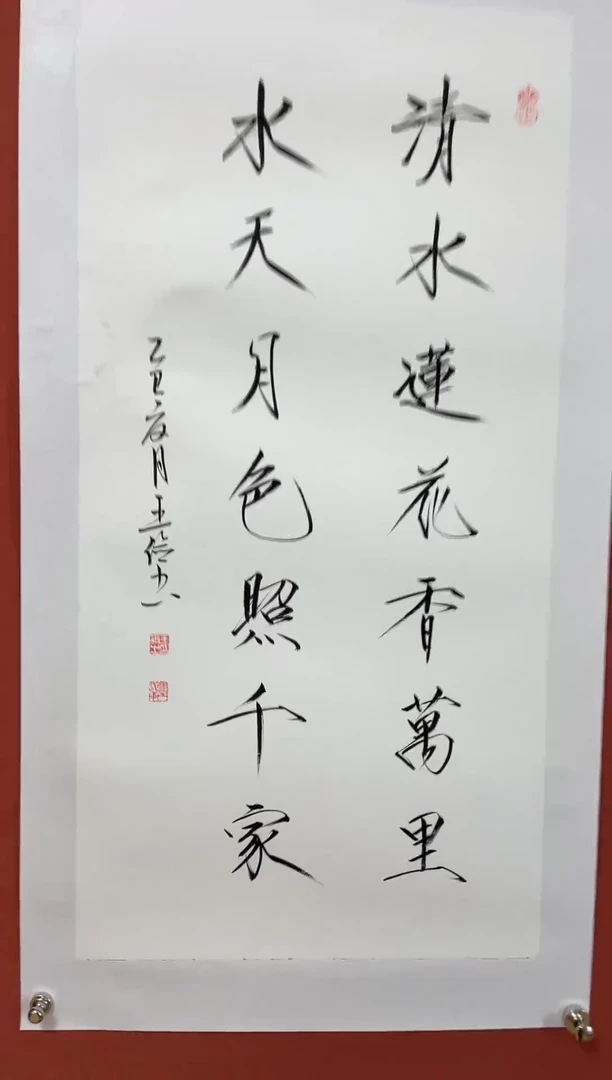 清水蓮花香萬里
水天月色照千家
乙丑夏月王